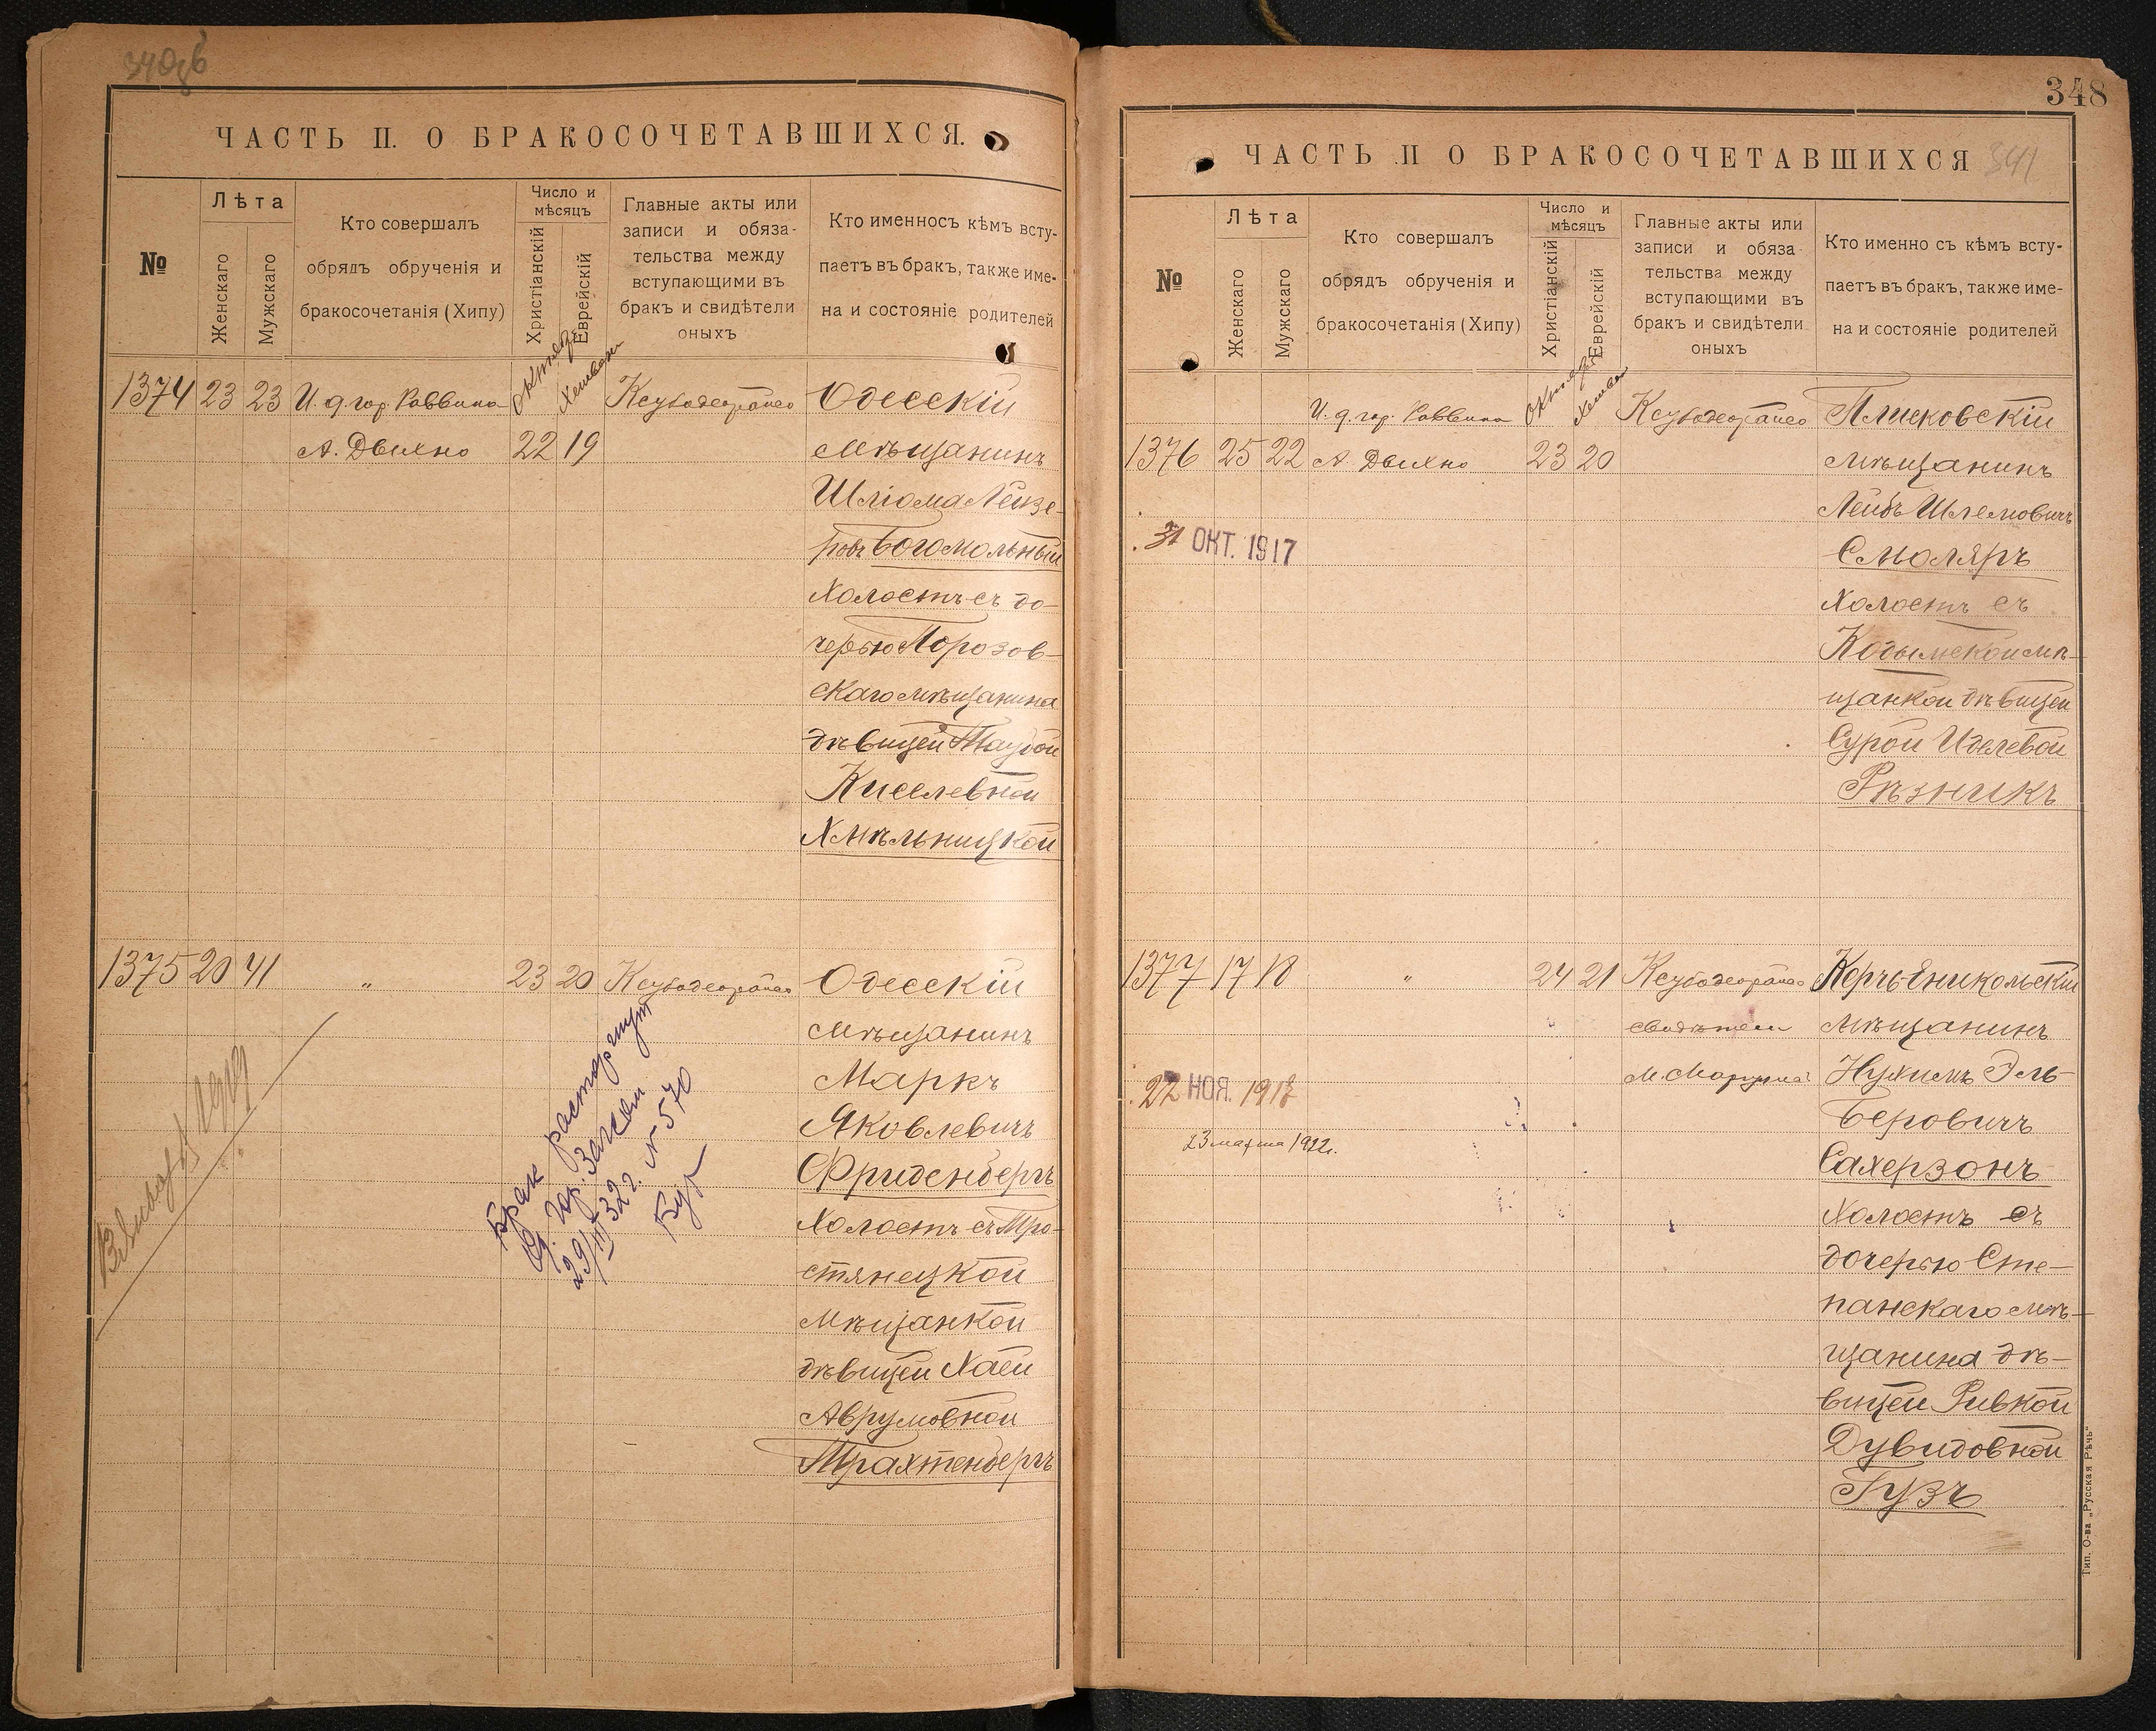 ЧАСТЬ II. О БРАКОСОЧЕТАВШИХСЯ.
№
Лѣта
Женскаго
Мужскаго
Кто совершалъ
обрядъ обрученія и
бракосочетанія (Хипу)
Число и
мѣсяцъ
Христіанскій
Еврейскій
Главные акты или
записи и обяза-
тельства между
вступающими въ
бракъ и свидѣтели
оныхъ
Кто именносъ кѣмъ всту-
паетъ въ бракъ, также име-
на и состояніе родителей
1374 23 23 И. д. гор. Раввина
А. Двихно 22 19
Одесскій
мѣщанинъ
Шліома Лейзе-
ровъ Богомольный
холостъ съ до-
черью Торозов-
скаго мѣщанина
дѣвицей Таубой
Киселевной
Хмѣльницкой
1375 20 41 " 23 20
Одесскій
мѣщанинъ
Маркъ
Яковлевичъ
Фриденбергъ
холостъ съ Тро-
стянецкой
мѣщанкой
дѣвицей Хаей
Аврумовной
Трахтенбергъ
Брак расторгнут
29/III 32 г. N 570
348
ЧАСТЬ II О БРАКОСОЧЕТАВШИХСЯ
341
№
Лѣта
Женскаго
Мужскаго
Кто совершалъ
обрядъ обрученія и
бракосочетанія (Хипу)
Число и
мѣсяцъ
Христіанскій
Еврейскій
Главные акты или
записи и обяза-
тельства между
вступающими въ
бракъ и свидѣтели
оныхъ
Кто именно съ кѣмъ всту-
паетъ въ бракъ, также име-
на и состояніе родителей
И. д. гор. Раввина
1376 25 22 А. Двихно 23 20
31 ОКТ. 1917
Плисковскій
мѣщанинъ
Лейбъ Шлемовичъ
Смоляръ
холостъ съ
Кодымской мѣ-
щанкой дѣвицей
Сурой Иделевой
Рѣзникъ
1377 17 18 " 24 21
свидѣтели
22 НОЯ. 191
23 марта 1922 г.
Керчь-Еникольскій
мѣщанинъ
Нухимъ Эль-
беровичъ
Сахерзонъ
холостъ съ
дочерью Сте-
панскаго мѣ-
щанина дѣ-
вицей Ривкой
Дувидовной
Гузъ
Тип. О-ва „Русская Рѣчь"